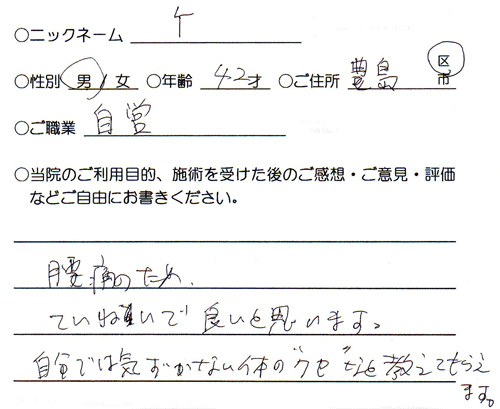 ○ニックネーム ケ
○性別 男 / 女 ○年齢 42才 ○ご住所 豊島 区 市
○ご職業 自営
○当院のご利用目的、施術を受けた後のご感想・ご意見・評価
などご自由にお書きください。
腰痛のため、
ていねいで良いと思います。
自分では気ずかない体の"クセ"などを教えてもらえ
ます。